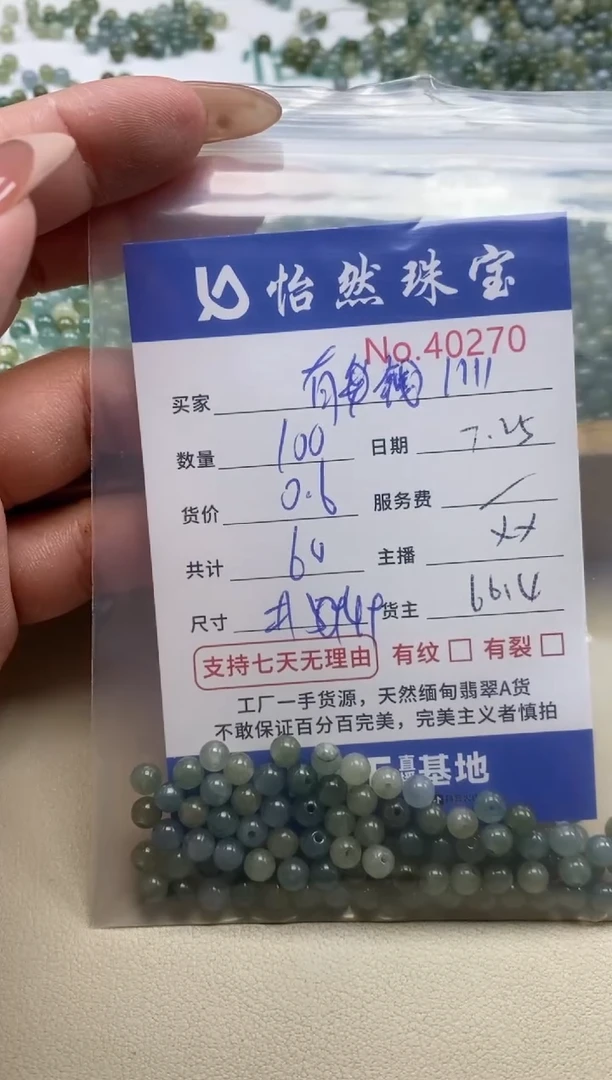 怡然珠宝
No.40270
买家 有 1111
数量 100 日期 7.25
货价 0.6 服务费 /
共计 60 主播 xx
尺寸 货主 66.4
支持七天无理由 有纹 □ 有裂 □
工厂一手货源，天然缅甸翡翠A货
不敢保证百分百完美，完美主义者慎拍
基地